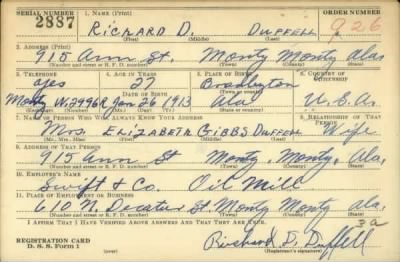 SERIAL NUMBER 1. NAME (Print) ORDER NUMBER
2887 RICHARD D. DUFFELL 926
(First) (Middle) (Last)
2. ADDRESS (Print)
915 Ann St. Monty Monty Ala
(Number and street or R. F. D. number) (Town) (County) (State)
3. TELEPHONE 4. AGE IN YEARS 5. PLACE OF BIRTH 6. COUNTRY OF CITIZENSHIP
yes 27
DATE OF BIRTH (Town or county)
Monty W.2996R Jan 26 1913 Ala U.S.A.
(Exchange) (Number) (Mo.) (Day) (Yr.) (State or country)
7. NAME OF PERSON WHO WILL ALWAYS KNOW YOUR ADDRESS 8. RELATIONSHIP OF THAT PERSON
Mrs. ELIZABETH GIBBS Duffell Wife
(Mr., Mrs., Miss) (First) (Middle) (Last)
9. ADDRESS OF THAT PERSON
915 Ann St Monty, Monty, Ala,
(Number and street or R. F. D. number) (Town) (County) (State)
10. EMPLOYER'S NAME
Swift & Co. Oil Mill
11. PLACE OF EMPLOYMENT OR BUSINESS
610 N. Decatur St. Monty Monty Ala
(Number and street or R. F. D. number) (Town) (County) (State)
I AFFIRM THAT I HAVE VERIFIED ABOVE ANSWERS AND THAT THEY ARE TRUE.
REGISTRATION CARD
D. S. S. Form 1 Richard D. Duffell
(Registrant's signature)